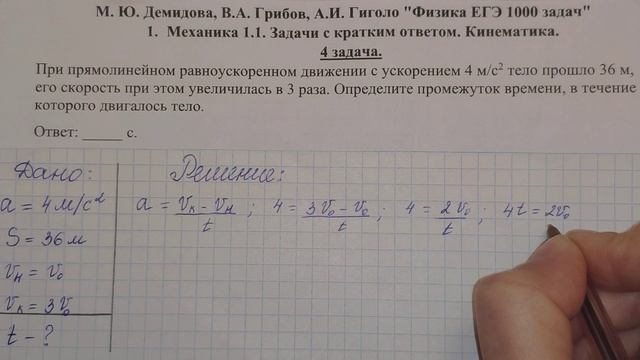 М. Ю. Демидова, В.А. Грибов, А.И. Гиголо "Физика ЕГЭ 1000 задач"
1. Механика 1.1. Задачи с кратким ответом. Кинематика.
4 задача.
При прямолинейном равноускоренном движении с ускорением 4 м/с² тело прошло 36 м,
его скорость при этом увеличилась в 3 раза. Определите промежуток времени, в течение
которого двигалось тело.
Ответ: _____ с.
Дано:
a = 4 м/с²
S = 36 м
vн = v₀
vк = 3v₀
t - ?
Решение:
a = (vк - vн)/t ; 4 = (3v₀ - v₀)/t ; 4 = 2v₀/t ; 4t = 2v₀